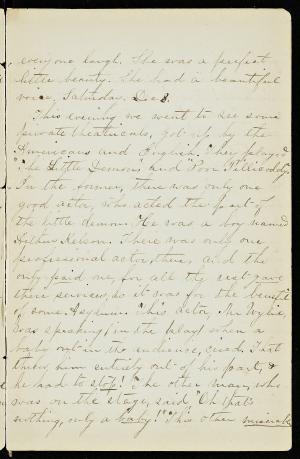 everyone laugh. She was a perfect
little beauty. She had a beautiful
voice, Saturday. Dec 8.
This evening we went to see some
private theatricals, got up by the
Americans and English. They played
"The Little Demon" and "Poor Pillicoddy.
In the former, there was only one
good actor, who acted the part of
the little demon. He was a boy named
Arthur Nelson. There was only one
professional actor, there, and the
only paid one, for all the rest gave
their services, as it was for the benefit
of some Asylum. This actor, Mr Wylie,
was speaking (in the play) when a
baby out in the audience, cried. That
threw him entirely out of his part, &
he had to stop! The other man, who
was on the stage, said "Oh that's
nothing, only a baby!" This other miserable